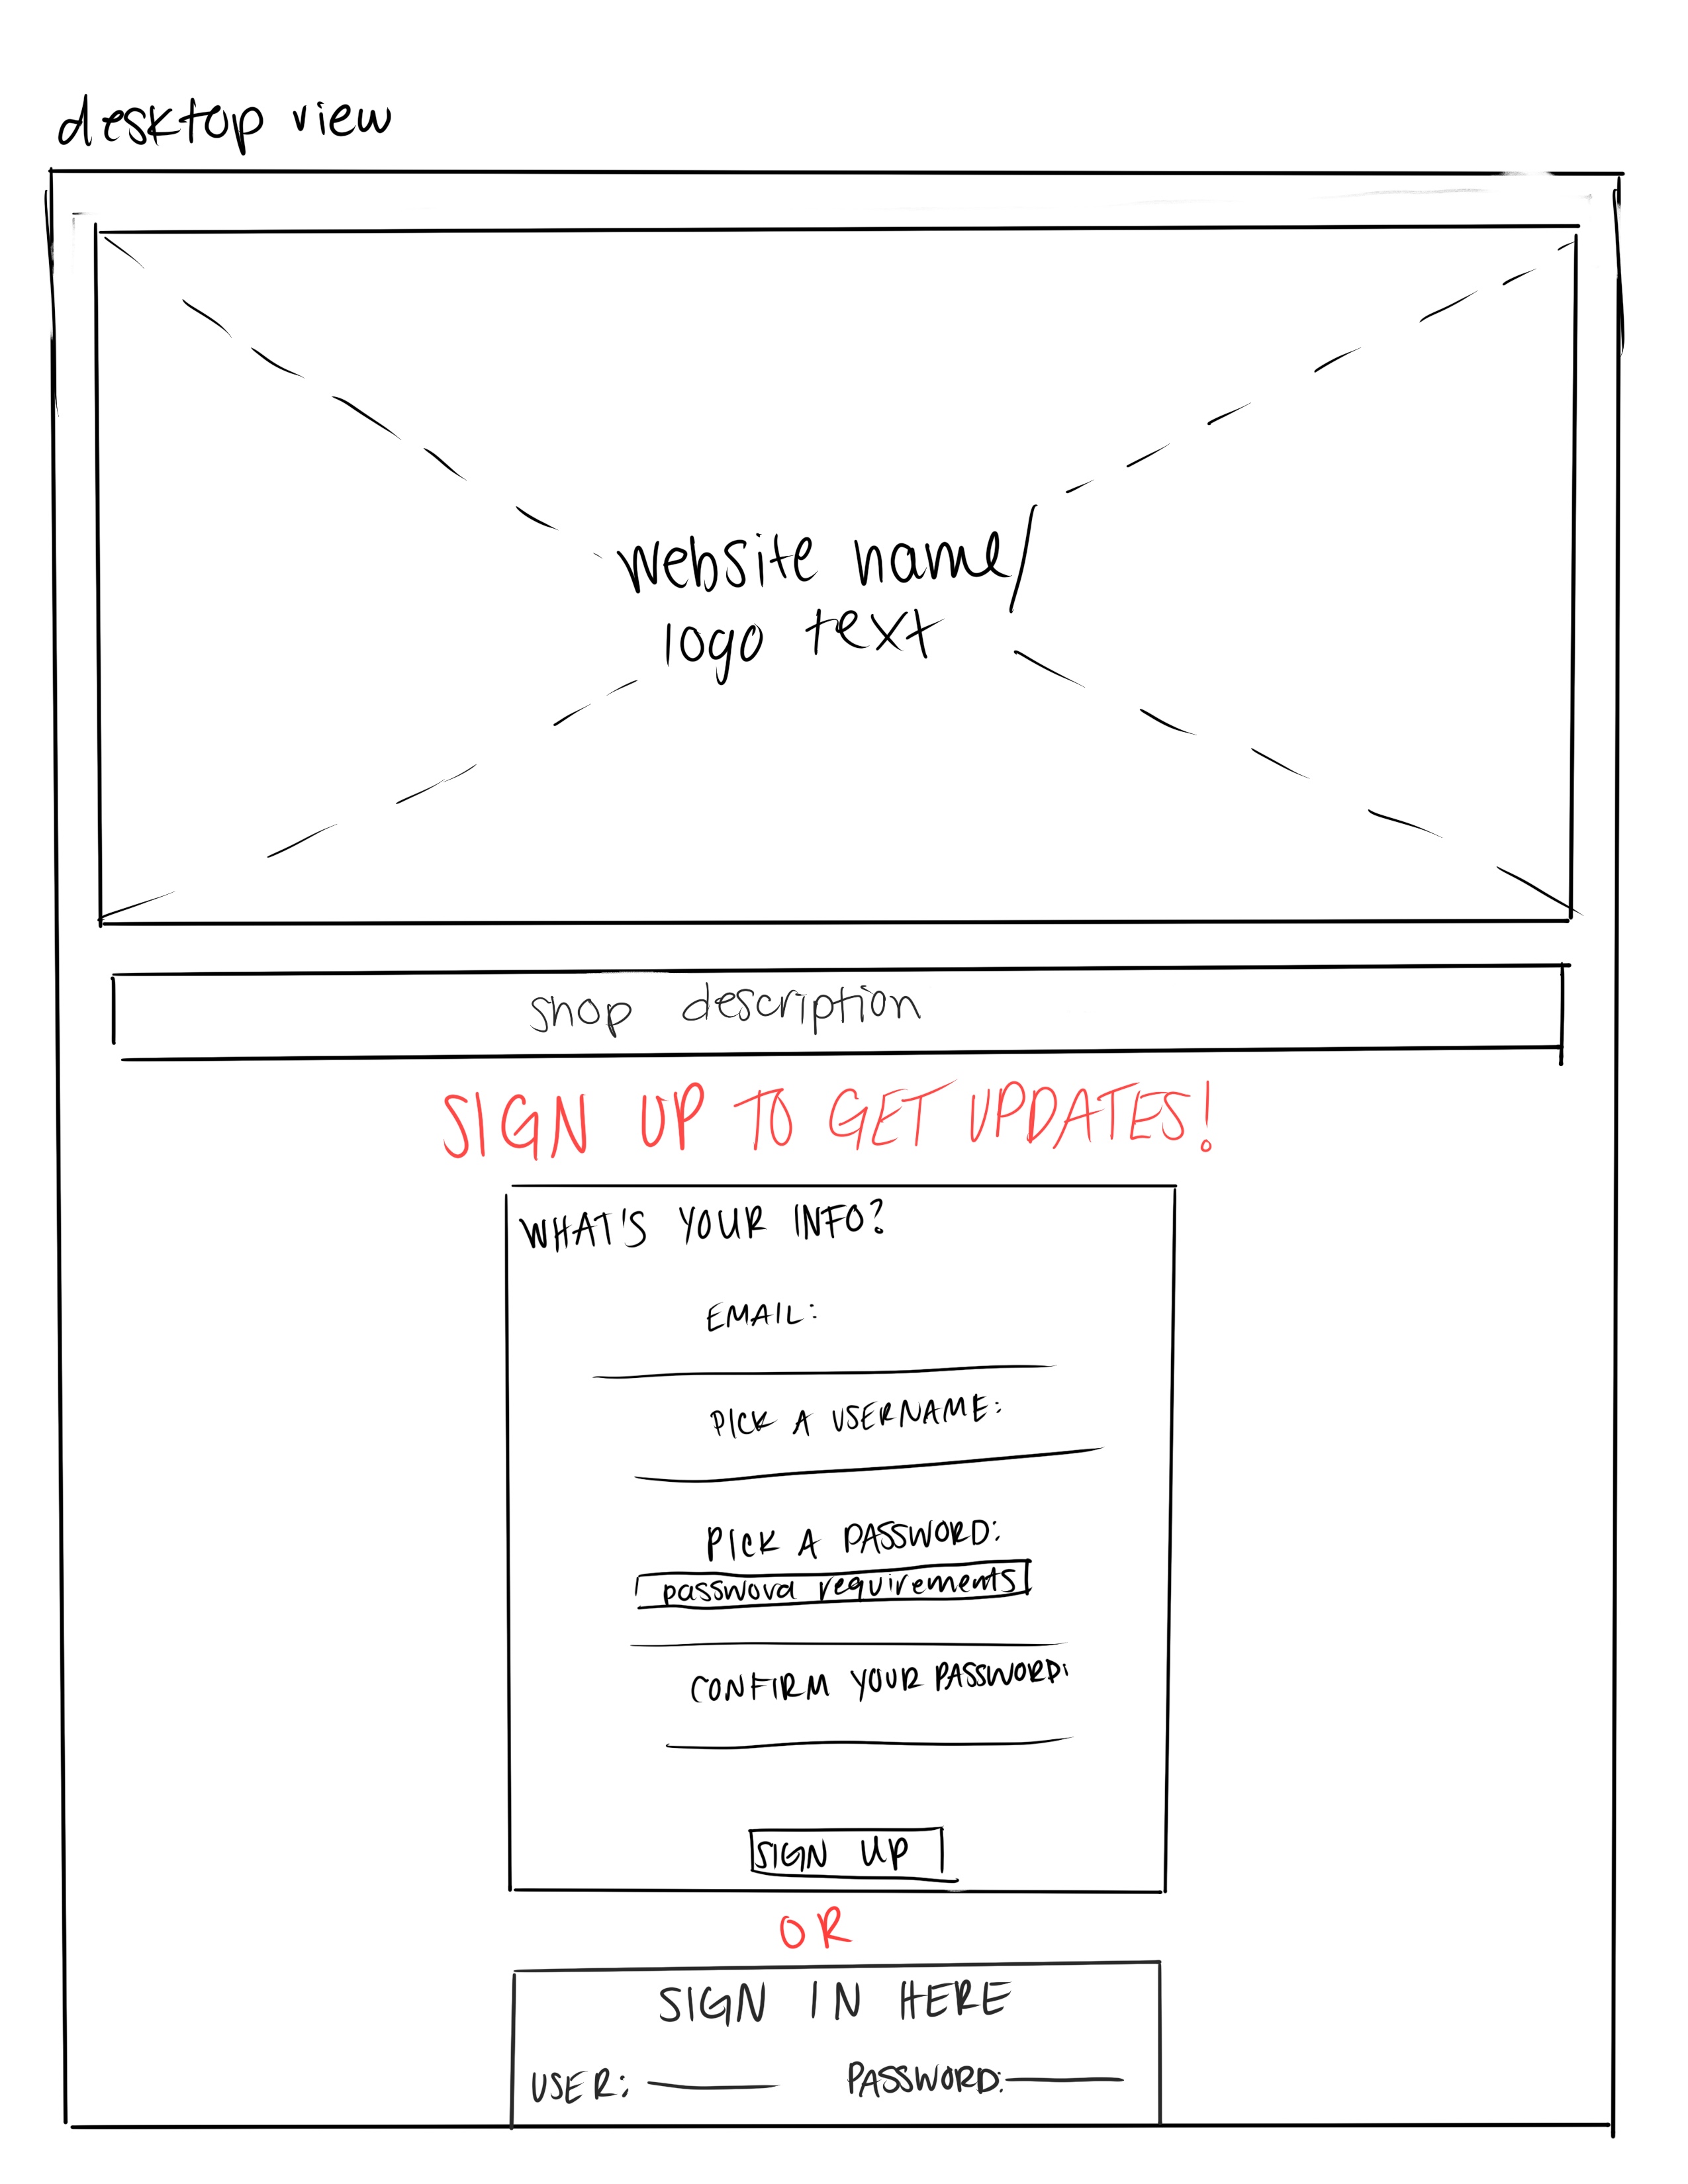 desktop view
website name/
logo text
shop description
SIGN UP TO GET UPDATES!
WHAT'S YOUR INFO?
EMAIL:
PICK A USERNAME:
PICK A PASSWORD:
password requirements
CONFIRM YOUR PASSWORD:
SIGN UP
OR
SIGN IN HERE
USER: PASSWORD: